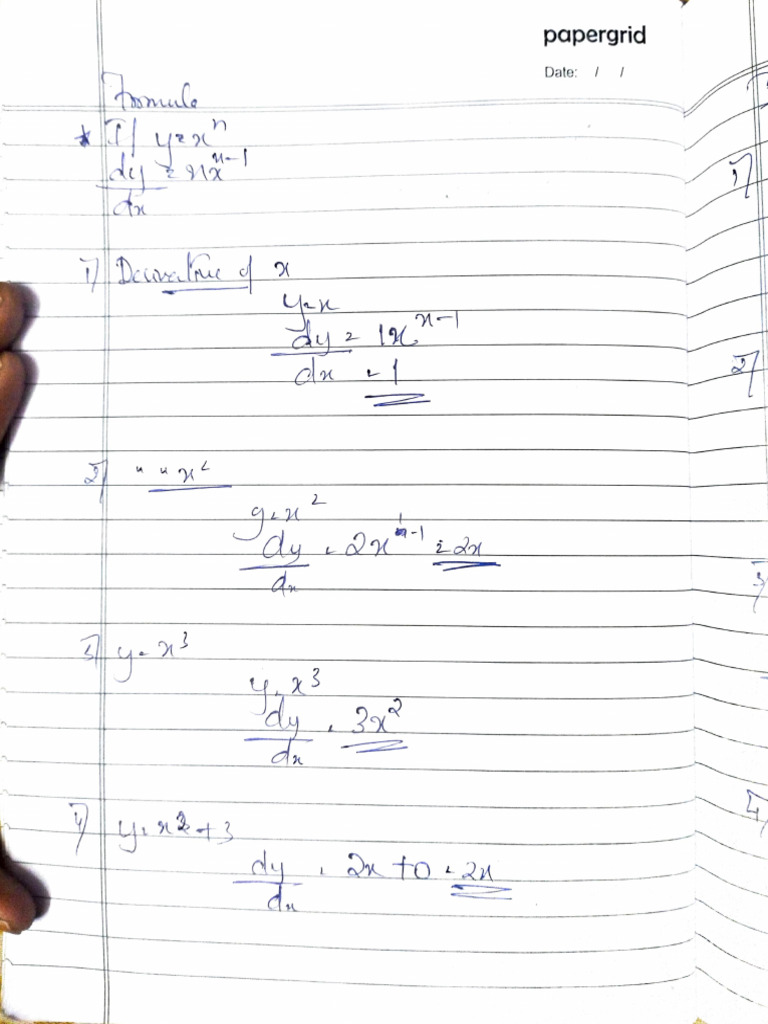 papergrid
Date: / /
Formula
* If y = xⁿ
dy/dx = nxⁿ⁻¹
1) Derivative of x
y = x
dy/dx = 1x^(x-1)
= 1
2) " " x²
y = x²
dy/dx = 2x^(1-1) = 2x
3) y = x³
y = x³
dy/dx = 3x²
4) y = x² + 3
dy/dx = 2x + 0 = 2x
1)
2)
3)
4)